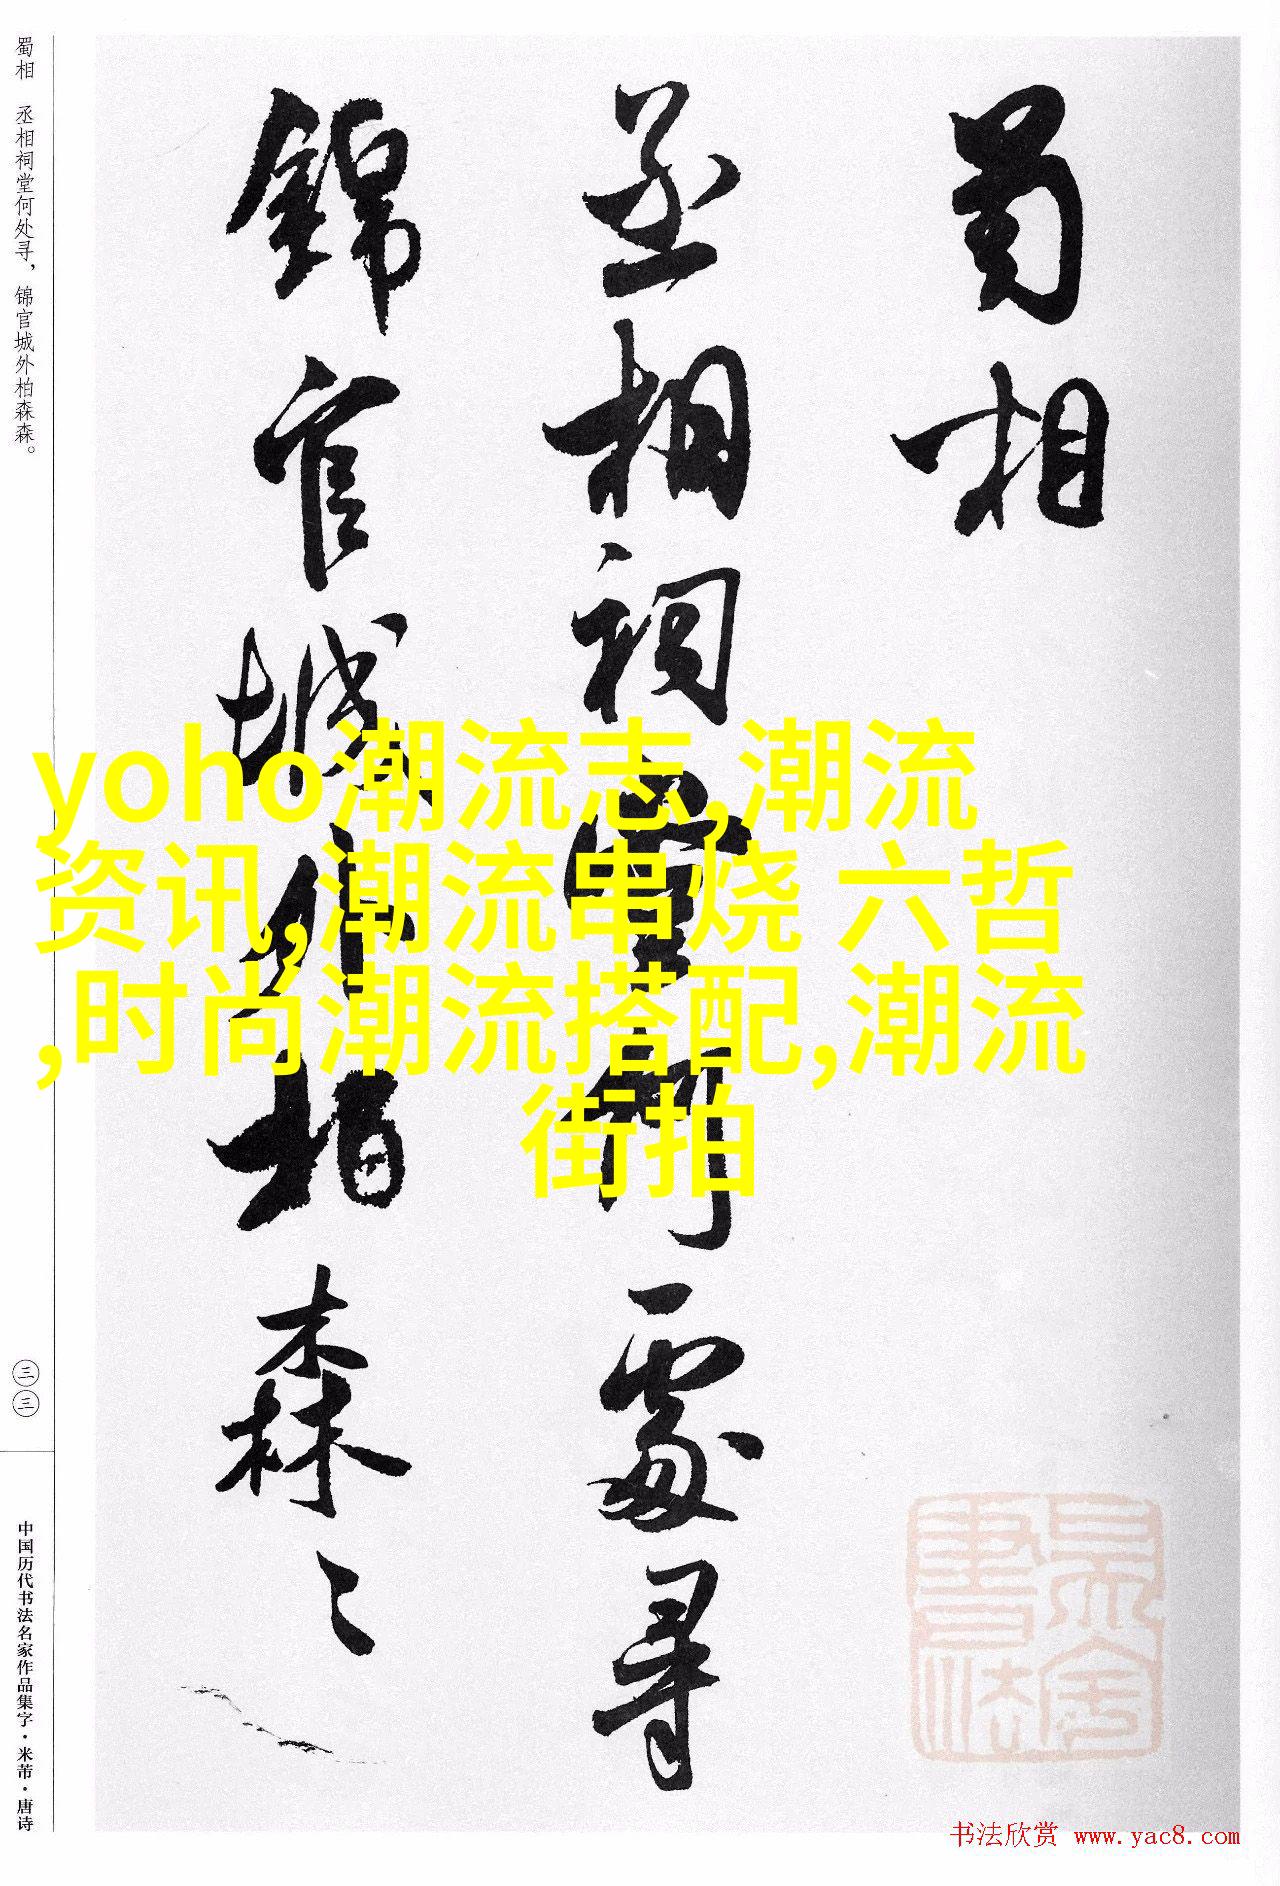 蜀相
丞相祠堂何處尋
錦官城外柏森〻
蜀相 丞相祠堂何处寻，锦官城外柏森森。
三三
中国历代书法名家作品集字·米芾·唐诗
yoho潮流志,潮流
资讯,潮流串烧 六哲
,时尚潮流搭配,潮流
街拍
书法欣赏 www.yac8.com